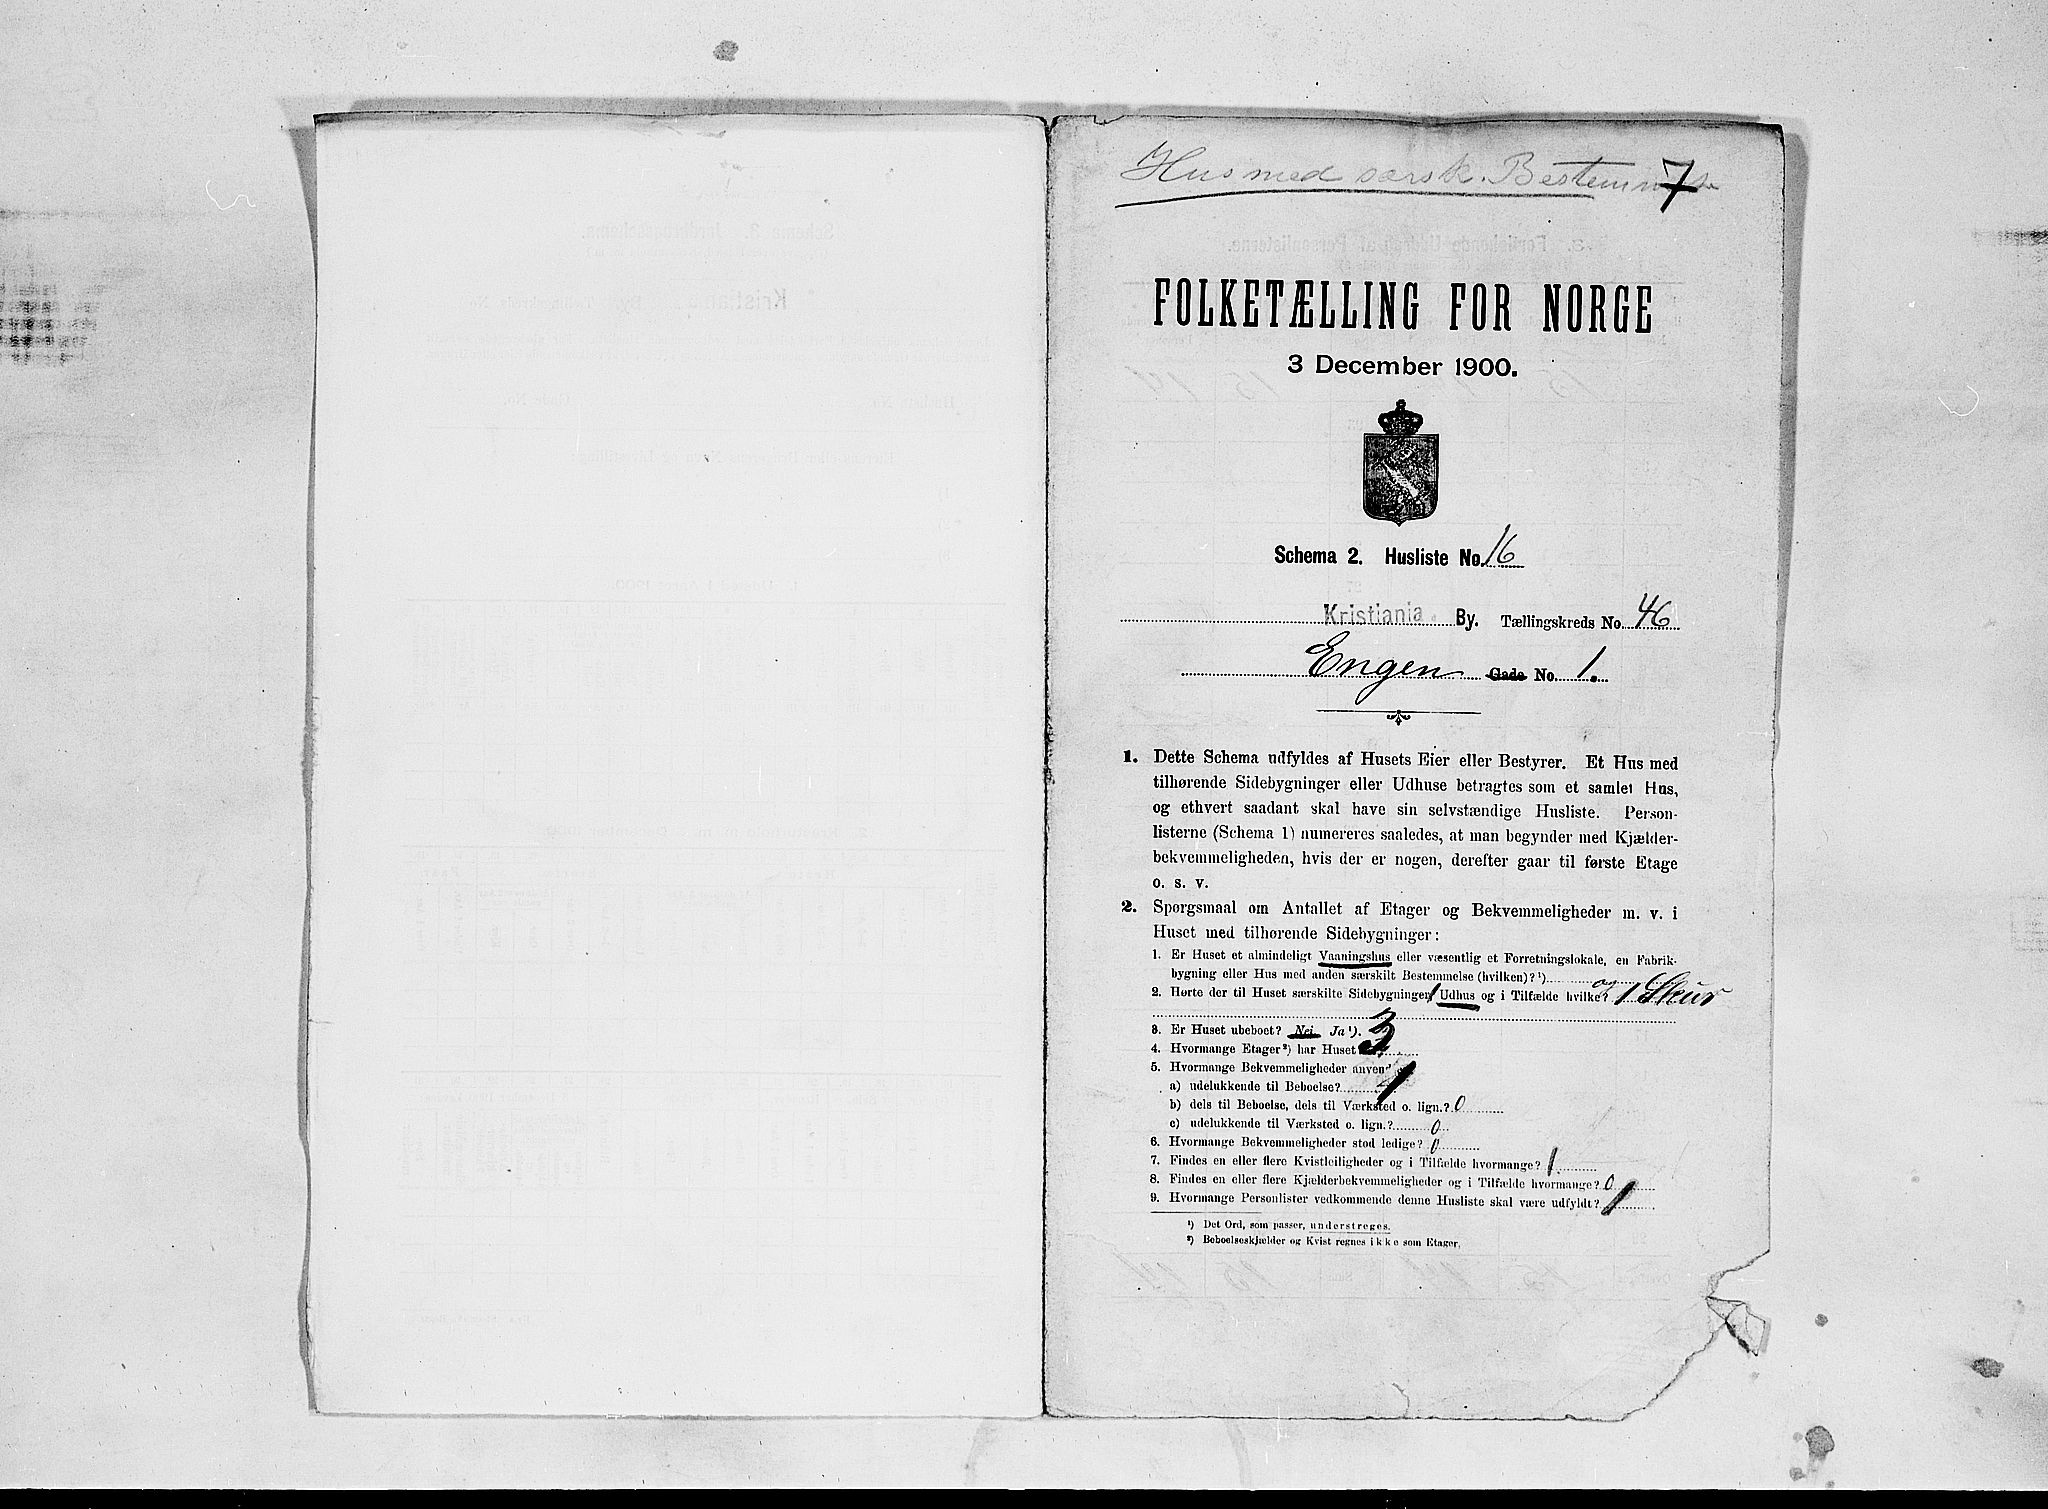 Hus med særsk. Bestemmelse
7
FOLKETÆLLING FOR NORGE
3 December 1900.
Schema 2. Husliste No. 16
Kristiania By. Tællingskreds No. 46
Engen Gade No. 1.
1. Dette Schema udfyldes af Husets Eier eller Bestyrer. Et Hus med
tilhørende Sidebygninger eller Udhuse betragtes som et samlet Hus,
og ethvert saadant skal have sin selvstændige Husliste. Person-
listerne (Schema 1) numereres saaledes, at man begynder med Kjælder-
bekvemmeligheden, hvis der er nogen, derefter gaar til første Etage
o. s. v.
2. Spørgsmaal om Antallet af Etager og Bekvemmeligheder m. v. i
Huset med tilhørende Sidebygninger:
1. Er Huset et almindeligt Vaaningshus eller væsentlig et Forretningslokale, en Fabrik-
bygning eller Hus med anden særskilt Bestemmelse (hvilken)? ¹)
2. Hørte der til Huset særskilte Sidebygninger, 1 Udhus og i Tilfælde hvilke? og 1 Skur
3. Er Huset ubeboet? Nei Ja ¹).
4. Hvormange Etager ²) har Huset 3
5. Hvormange Bekvemmeligheder anvend
a) udelukkende til Beboelse? 1
b) dels til Beboelse, dels til Værksted o. lign.? 0
c) udelukkende til Værksted o. lign.? 0
6. Hvormange Bekvemmeligheder stod ledige? 0
7. Findes en eller flere Kvistleiligheder og i Tilfælde hvormange? 1.
8. Findes en eller flere Kjælderbekvemmeligheder og i Tilfælde hvormange? 0
9. Hvormange Personlister vedkommende denne Husliste skal være udfyldt? 1
¹) Det Ord, som passer, understreges.
²) Beboelseskjælder og Kvist regnes ikke som Etager.